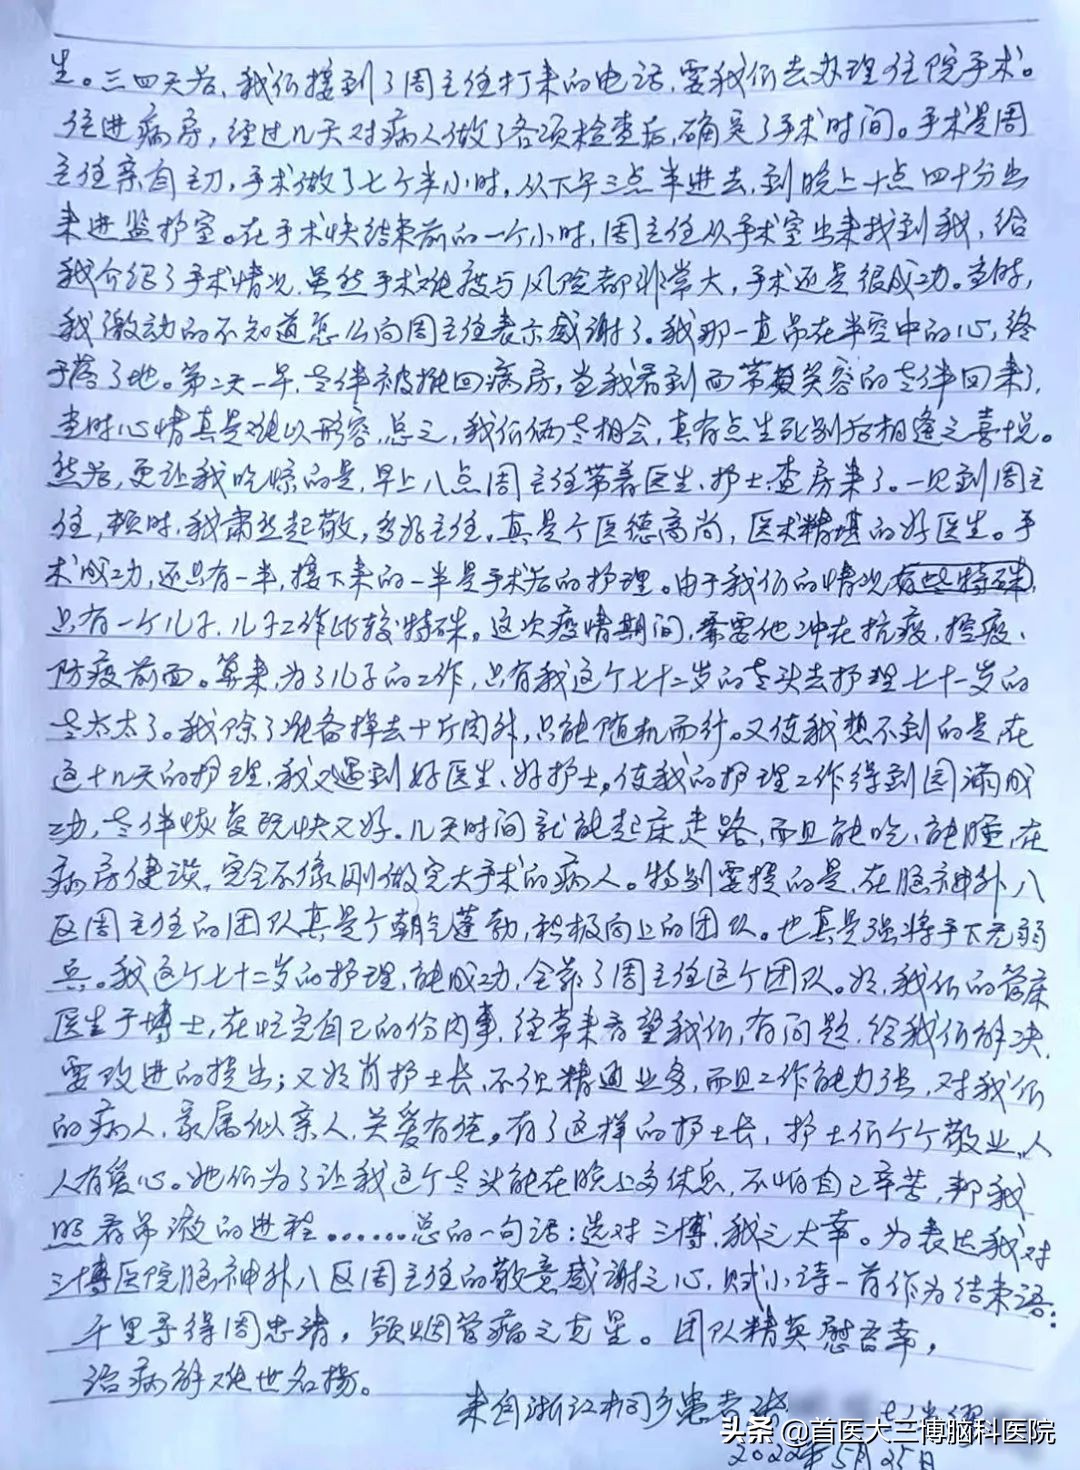 生。三四天后、我们接到了周主任打来的电话，要我们去办理住院手术。
住进病房，经过几天对病人做了各项检查后，确定了手术时间。手术是周
主任亲自主刀，手术做了七个半小时，从下午三点半进去，到晚上十点四十分出
来进监护室。在手术快结束前的一个小时，周主任从手术室出来找到我，给
我介绍了手术情况，虽然手术难度与风险都非常大，手术还是很成功。当时，
我激动的不知道怎么向周主任表示感谢了。我那一直吊在半空中的心，终
于落了地。第二天一早，老伴被推回病房，当我看到面带笑容的老伴回来了，
当时心情真是难以形容，总之，我们俩老相会，真有点生死别后相逢之喜悦。
然后，更让我吃惊的是，早上八点周主任带着医生、护士查房来了。一见到周主
任，顿时，我肃然起敬，多好主任，真是个医德高尚，医术精堪的好医生。手
术成功，还只有一半，接下来的一半是手术后的护理。由于我们的情况有些特殊，
只有一个儿子，儿子工作比较特殊。这次疫情期间，需要他冲在抗疫，控疫、
防疫前面。算来，为了儿子的工作，只有我这个七十二岁的老头去护理七十一岁的
老太太了。我除了准备掉去十斤肉外，只能随机而行。又使我想不到的是，在
这十几天的护理，我又遇到好医生、好护士，使我的护理工作得到圆满成
功，老伴恢复既快又好。几天时间就能起床走路，而且能吃、能睡，在
病房健谈，完全不像刚做完大手术的病人。特别要提的是，在脑神外八
区周主任的团队真是个朝气蓬勃，积极向上的团队。也真是强将手下无弱
兵。我这个七十二岁的护理，能成功，全靠了周主任这个团队。如，我们的管床
医生于博士，在忙完自己的份内事，经常来看望我们，有问题，给我们解决，
要改进的提出；又如肖护士长，不但精通业务，而且工作能力强，对我们
的病人、家属似亲人，关爱有佳。有了这样的护士长，护士们个个敬业，人
人有爱心。她们为了让我这个老头能在晚上多休息，不怕自己辛苦，帮我
照看吊液的进程……总的一句话：选对三博，我之大幸。为表达我对
三博医院脑神外八区周主任的敬意感谢之心，赋小诗一首作为结束语：
千里寻得周忠清，颅咽管瘤之克星。团队精英慰吾幸，
治病解难世名扬。
来自浙江桐乡患者
2022年5月25日
头条 @首医大三博脑科医院